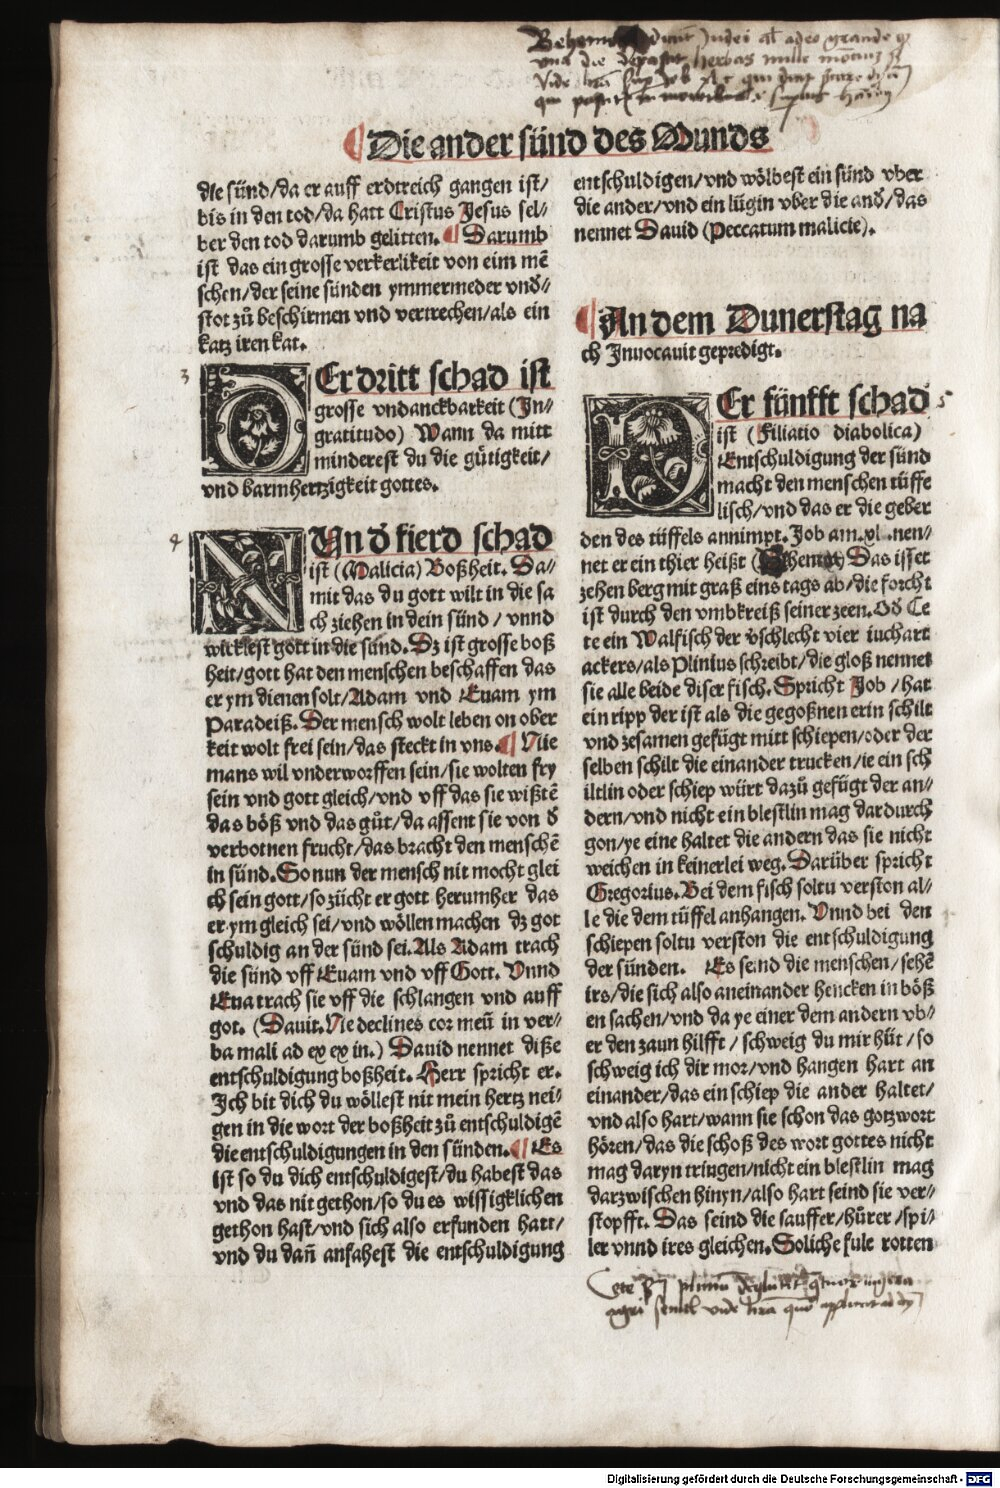 Die ander sünd des Munds
die sünd/da er auff erdtreich gangen ist/
bis in den tod/da hatt Cristus Jesus sel⸗
ber den tod darumb gelitten. Darumb
ist das ein grosse verkerlikeit von eim mē
schen/der seine sünden ymmermeder vnď⸗
stot zů beschirmen vnd vertrechen/als ein
katz iren kat.
3
DEr dritt schad ist
grosse vndanckbarkeit (In⸗
gratitudo) Wann da mitt
minderest du die gütigkeit/
vnd barmhertzigkeit gottes.
4
NUn ď fierd schad
ist (Malicia) Boßheit. Da⸗
mit das du gott wilt in die sa
ch ziehen in dein sünd / vnnd
wicklest gott in die sünd. Dz ist grosse boß
heit/gott hat den menschen beschaffen das
er ym dienen solt/Adam vnd Euam ym
Paradeiß. Der mensch wolt leben on ober
keit wolt frei sein/das steckt in vns. Nie
mans wil vnderworffen sein/sie wolten fry
sein vnd gott gleich/vnd vff das sie wißtē
das böß vnd das gůt/da assent sie von ď
verbotnen frucht/das bracht den menschē
in sünd. So nun der mensch nit mocht glei
ch sein gott/so zücht er gott herumher das
er ym gleich sei/vnd wöllen machen dz got
schuldig an der sünd sei. Als Adam trach
die sünd vff Euam vnd vff Gott. Vnnd
Eua trach sie vff die schlangen vnd auff
got. (Dauit. Ne declines cor meū in ver⸗
ba mali ad ex ex in.) Dauid nennet diße
entschuldigung boßheit. Herr spricht er.
Ich bit dich du wöllest nit mein hertz nei⸗
gen in die wort der boßheit zů entschuldigē
die entschuldigungen in den sünden. Es
ist so du dich entschuldigest/du habest das
vnd das nit gethon/so du es wissigklichen
gethon hast/vnd sich also erfunden hatt/
vnd du dañ anfahest die entschuldigung
entschuldigen/vnd wölbest ein sünd vber
die ander/vnd ein lügin vber die anď/das
nennet Dauid (Peccatum malicie).
An dem Dunerstag na
ch Inuocauit gepredigt.
DEr fünfft schad
5
ist (Filiatio diabolica)
Entschuldigung der sünd
macht den menschen tüffe
lisch/vnd das er die geber
den des tüffels annimpt. Job am .xl .nen⸗
net er ein thier heißt Das isset
zehen berg mit graß eins tags ab/die forcht
ist durch den vmbkreiß seiner zeen. Oď Ce
te ein Walfisch der ѵschlecht vier iuchart
ackers/als Plinius schreibt/die gloß nennet
sie alle beide diser fisch. Spricht Job / hat
ein ripp der ist als die gegoßnen erin schilt
vnd zesamen gefügt mitt schiepen/oder der
selben schilt die einander trucken/ie ein sch
iltlin oder schiep würt dazů gefügt der an⸗
dern/vnd nicht ein blestlin mag dardurch
gon/ye eine haltet die andern das sie nicht
weichen in keinerlei weg. Darüber spricht
Gregorius. Bei dem fisch soltu verston al⸗
le die dem tüffel anhangen. Vnnd bei den
schiepen soltu verston die entschuldigung
der sünden. Es seind die menschen/sehē
irs/die sich also aneinander hencken in böß
en sachen/vnd da ye einer dem andern vb⸗
er den zaun hilfft / schweig du mir hüt / so
schweig ich dir mor/vnd hangen hart an
einander/das ein schiep die ander haltet/
vnd also hart/wann sie schon das gotzwort
hören/das die schoß des wort gottes nicht
mag daryn tringen/nicht ein blestlin mag
darzwischen hinyn/also hart seind sie ver⸗
stopfft. Das seind die sauffer/hůrer/spi⸗
ler vnnd ires gleichen. Soliche fule rotten
Digitalisierung gefördert durch die Deutsche Forschungsgemeinschaft - DFG